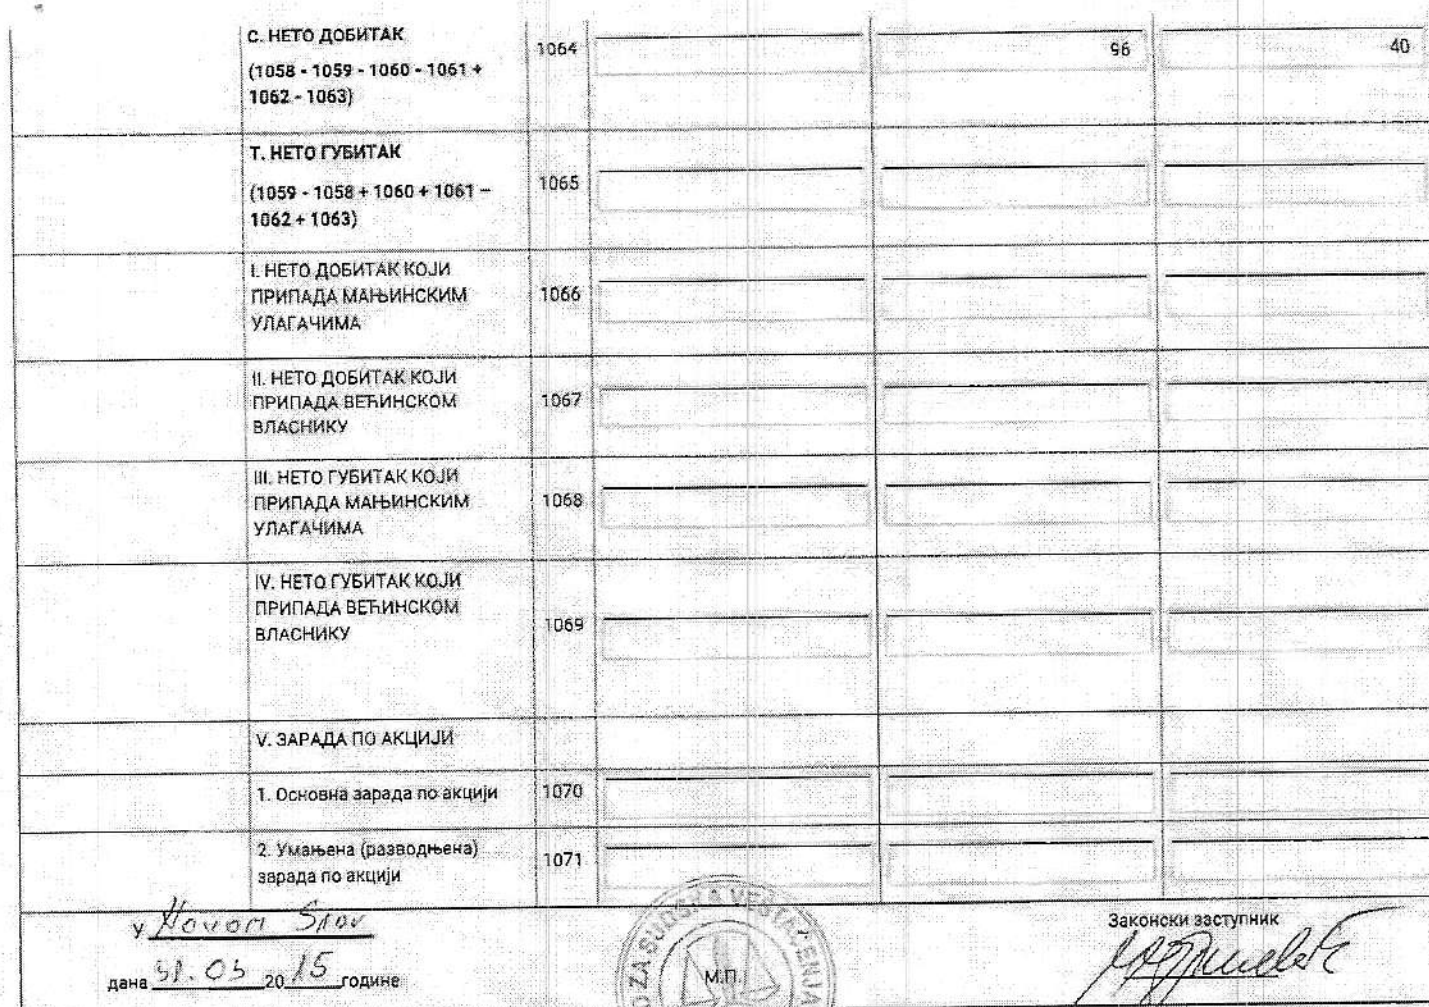 С. НЕТО ДОБИТАК
(1058 - 1059 - 1060 - 1061 +
1062 - 1063)
1064
96
40
Т. НЕТО ГУБИТАК
(1059 - 1058 + 1060 + 1061 –
1062 + 1063)
1065
I. НЕТО ДОБИТАК КОЈИ
ПРИПАДА МАЊИНСКИМ
УЛАГАЧИМА
1066
II. НЕТО ДОБИТАК КОЈИ
ПРИПАДА ВЕЋИНСКОМ
ВЛАСНИКУ
1067
III. НЕТО ГУБИТАК КОЈИ
ПРИПАДА МАЊИНСКИМ
УЛАГАЧИМА
1068
IV. НЕТО ГУБИТАК КОЈИ
ПРИПАДА ВЕЋИНСКОМ
ВЛАСНИКУ
1069
V. ЗАРАДА ПО АКЦИЈИ
1. Основна зарада по акцији
1070
2. Умањена (разводњена)
зарада по акцији
1071
у Новом
дана 20 15 године
ZA SUDSKA VEŠTAČENJA
М.П.
Законски заступник